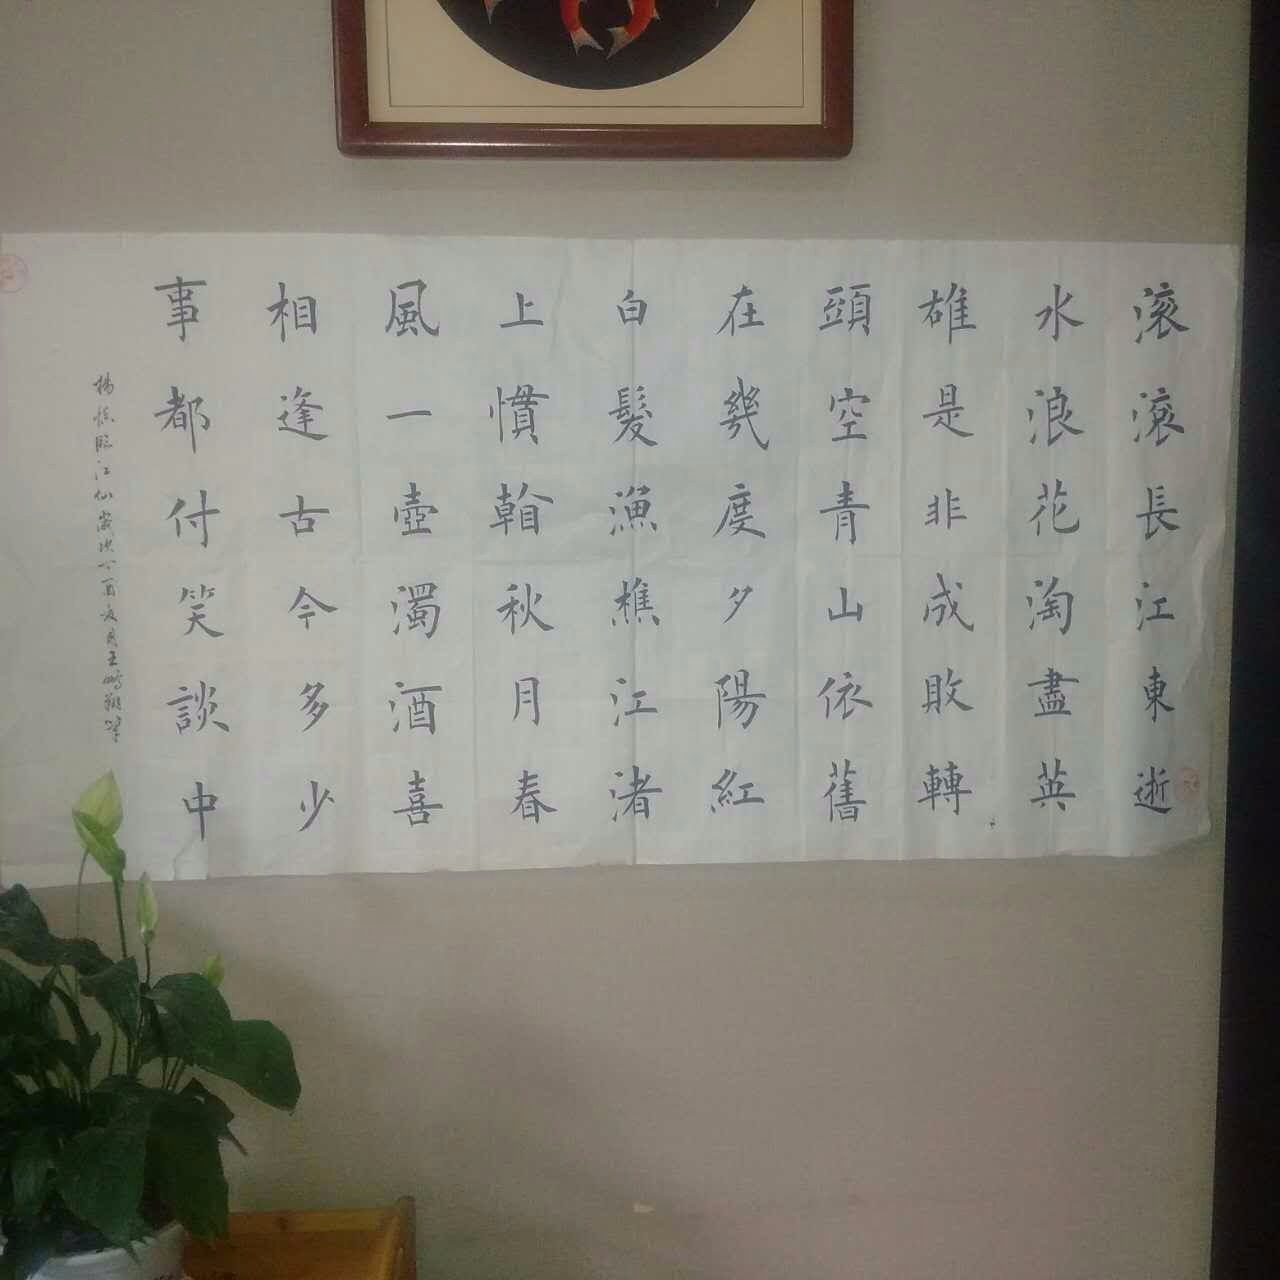 滚滾長江東逝
水浪花淘盡英
雄是非成敗轉
頭空青山依舊
在幾度夕陽紅
白髮漁樵江渚
上慣看秋月春
風一壺濁酒喜
相逢古今多少
事都付笑談中
楊慎臨江仙歲次丁酉夏月王鵬翔書